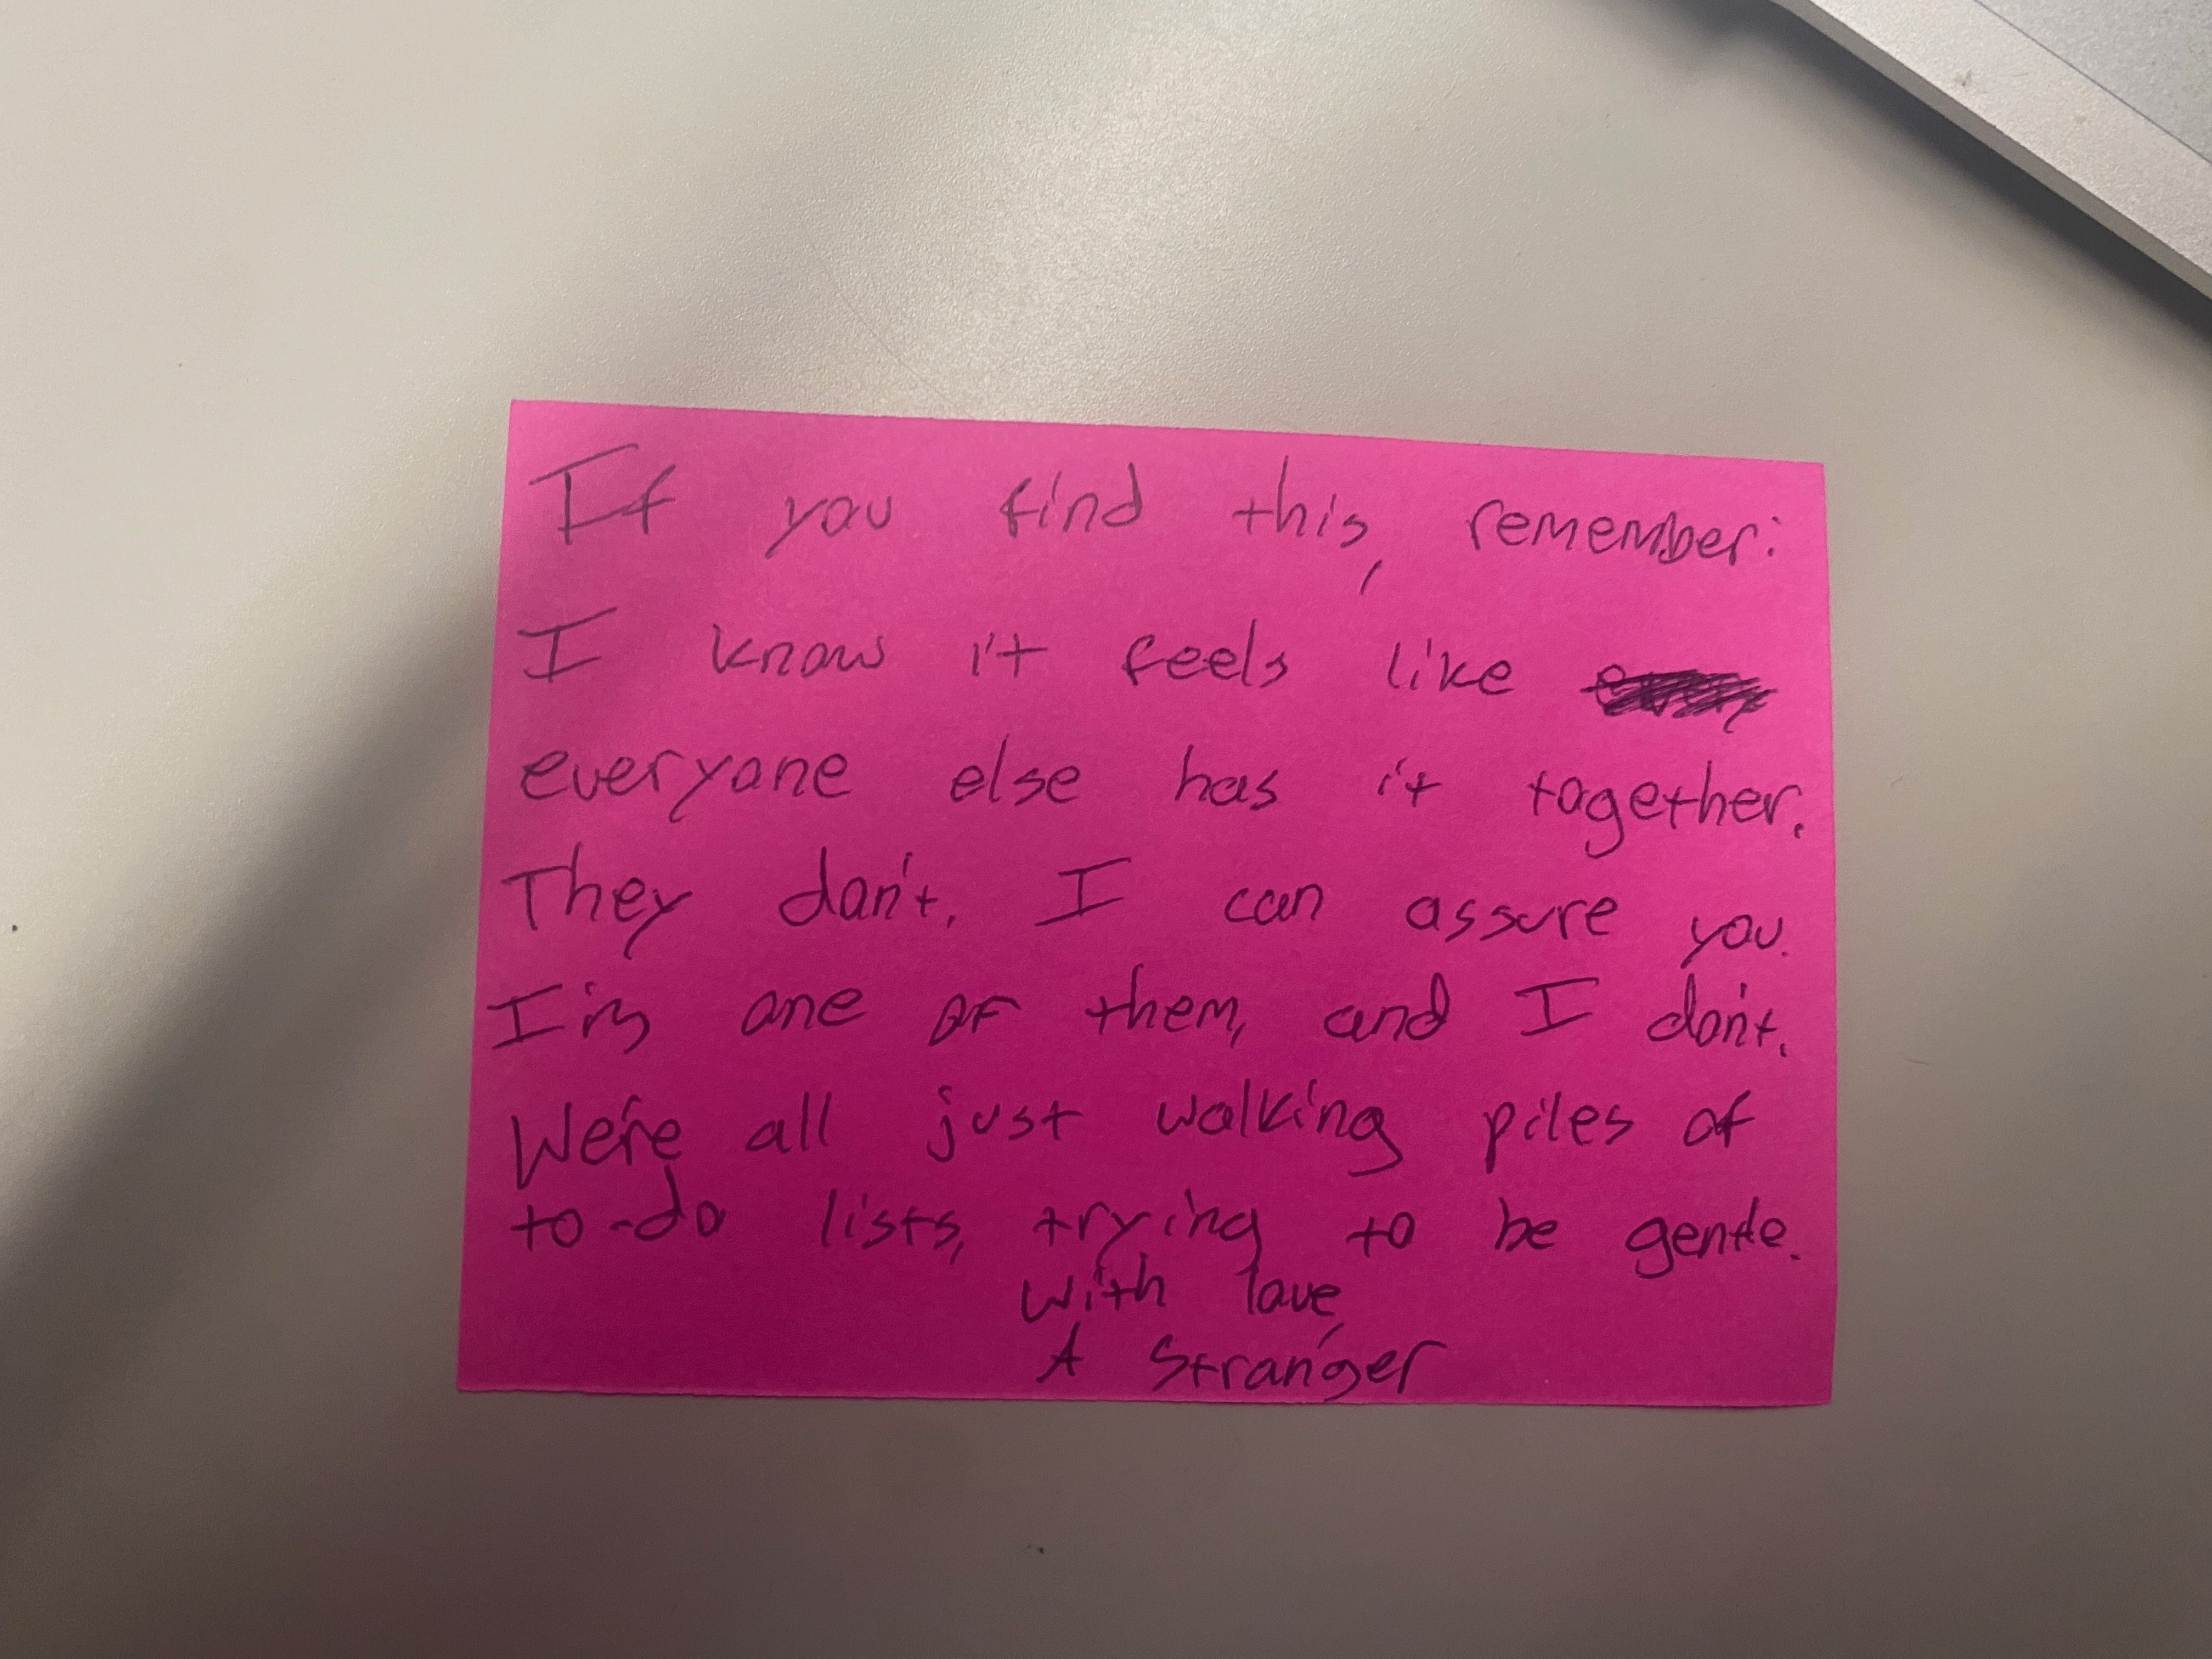 If you find this, remember:
I know it feels like
everyone else has it together.
They don't. I can assure you.
I'm one of them, and I don't.
We're all just walking piles of
to-do lists, trying to be gentle.
With love,
A Stranger